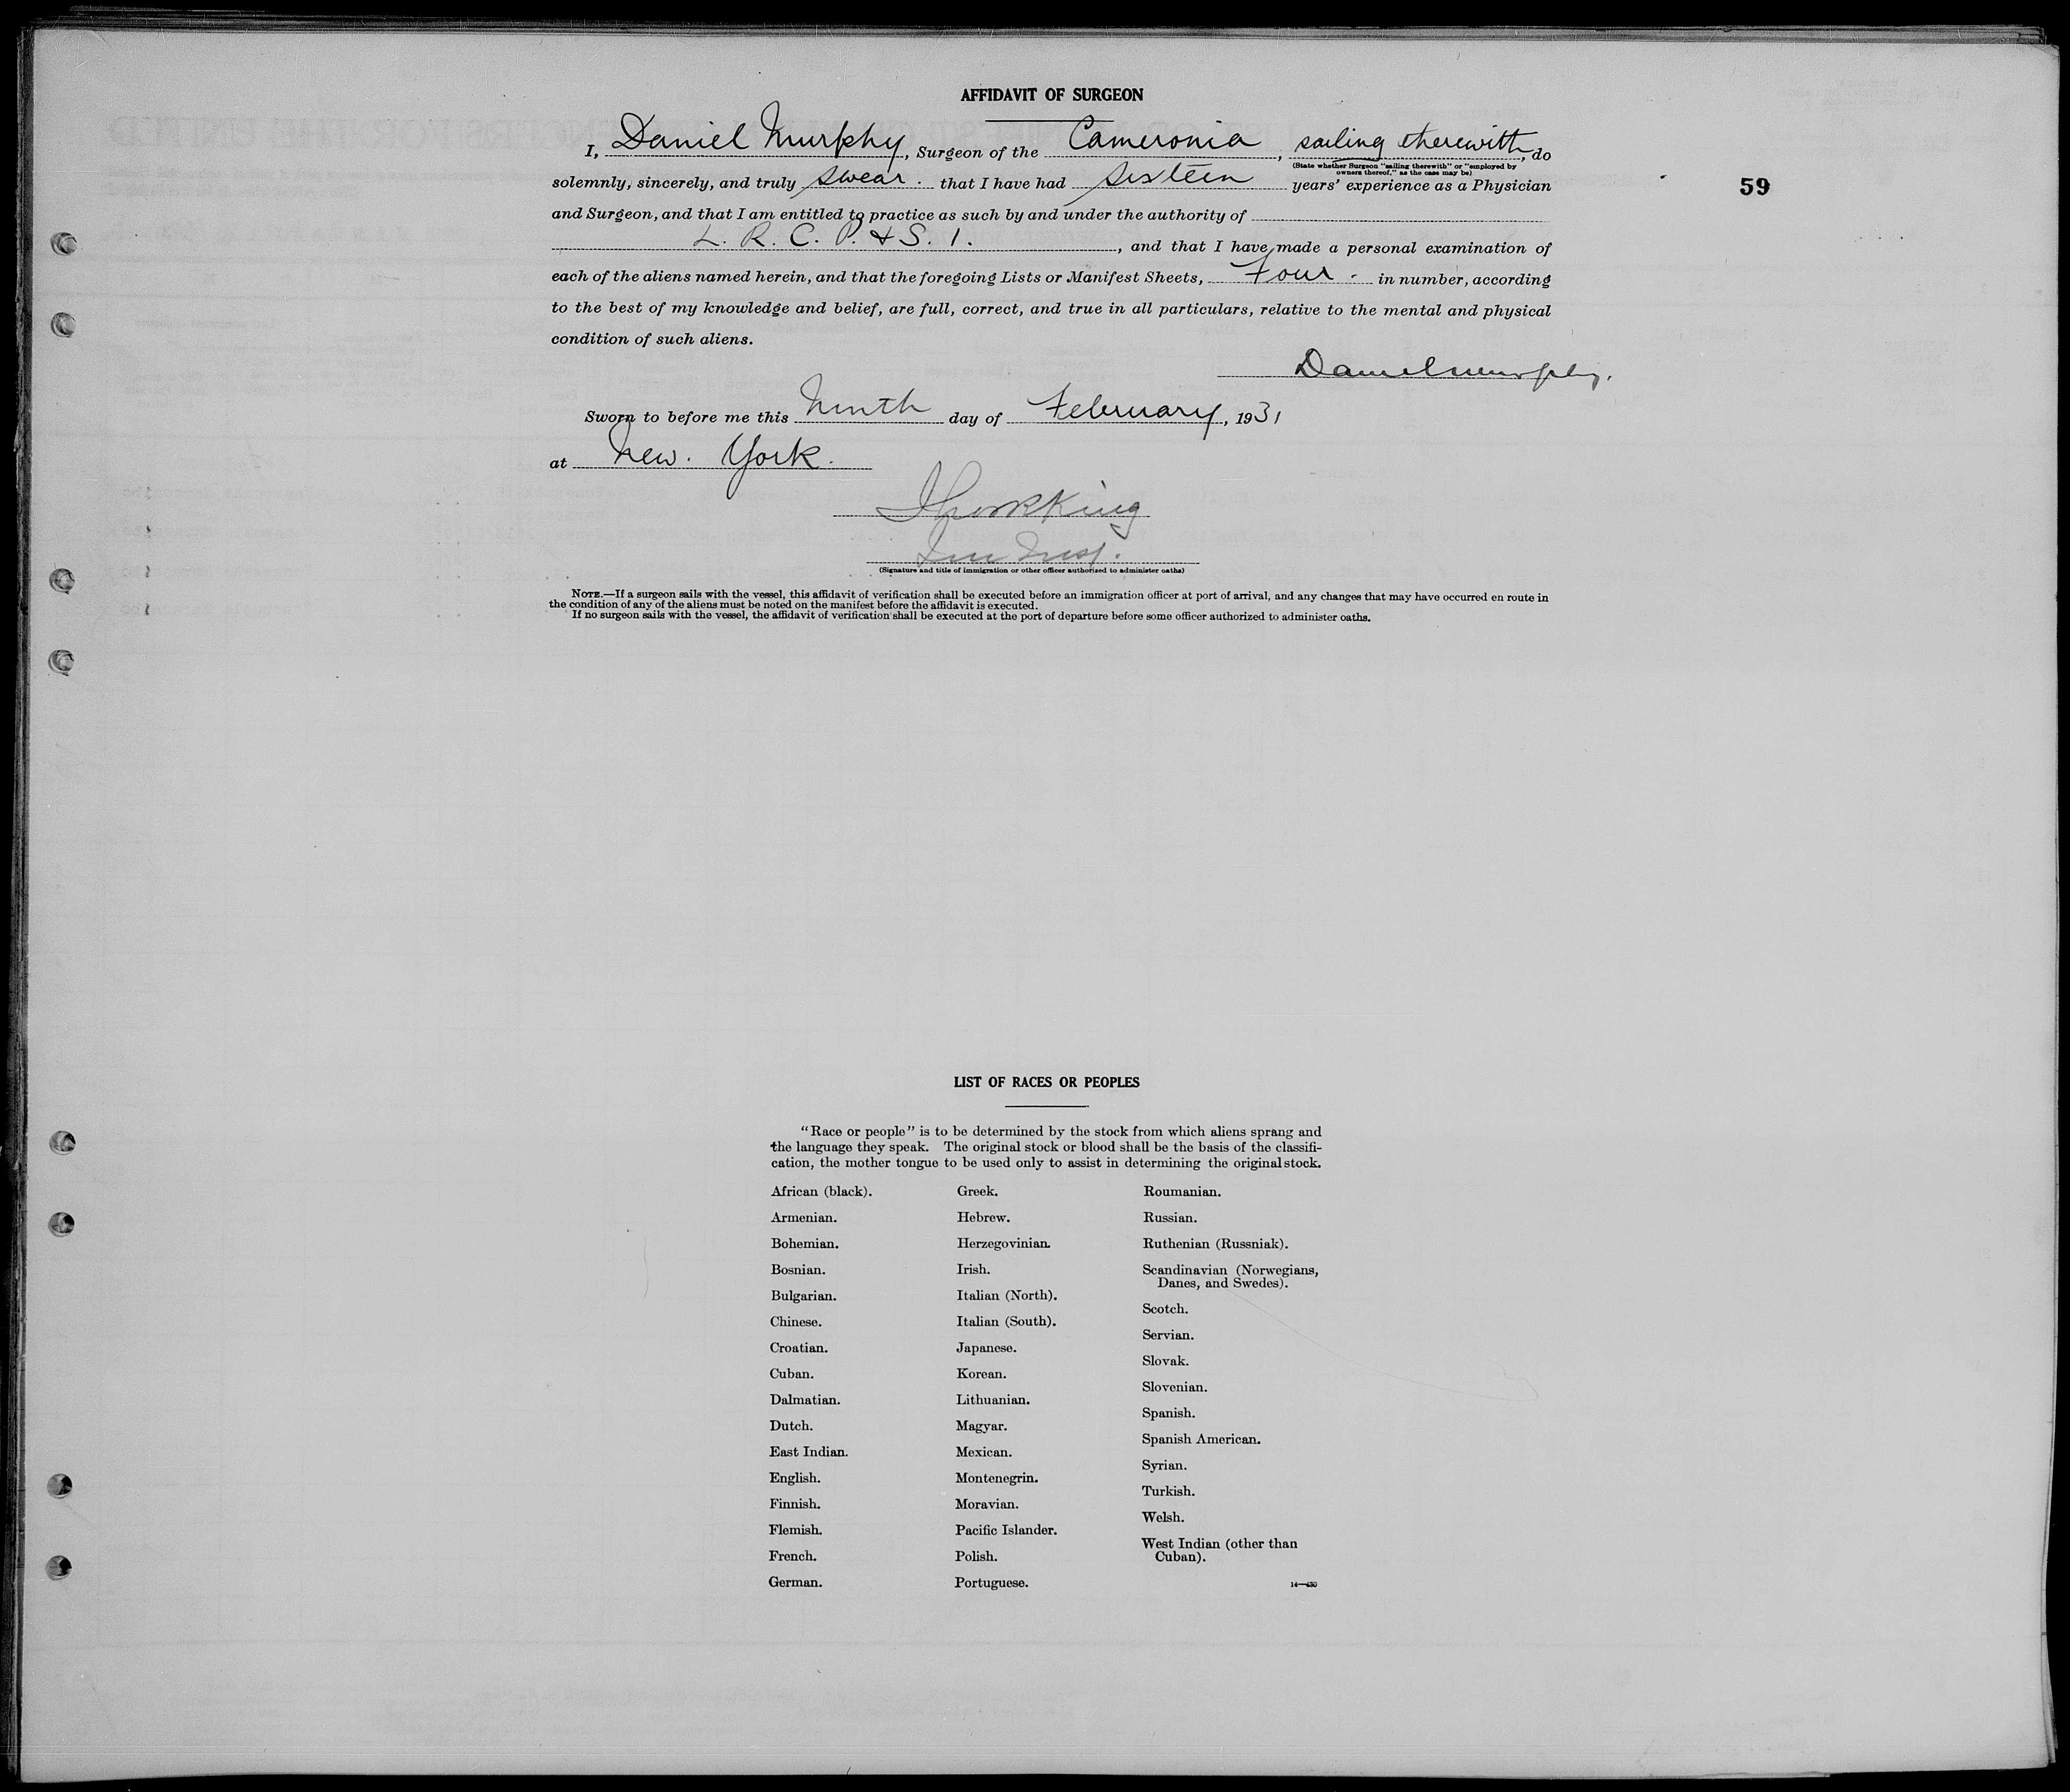 AFFIDAVIT OF SURGEON
I, Daniel Murphy, Surgeon of the Cameronia, sailing therewith, do
(State whether Surgeon "sailing therewith" or "employed by
owners thereof," as the case may be)
solemnly, sincerely, and truly swear. that I have had sixteen years' experience as a Physician
59
and Surgeon, and that I am entitled to practice as such by and under the authority of
L. R. C. P. & S. I., and that I have made a personal examination of
each of the aliens named herein, and that the foregoing Lists or Manifest Sheets, Four - in number, according
to the best of my knowledge and belief, are full, correct, and true in all particulars, relative to the mental and physical
condition of such aliens.
Daniel Murphy.
Sworn to before me this Ninth day of February, 1931
at New. York.
King
Imm Insp.
(Signature and title of immigration or other officer authorized to administer oaths)
NOTE.—If a surgeon sails with the vessel, this affidavit of verification shall be executed before an immigration officer at port of arrival, and any changes that may have occurred en route in
the condition of any of the aliens must be noted on the manifest before the affidavit is executed.
If no surgeon sails with the vessel, the affidavit of verification shall be executed at the port of departure before some officer authorized to administer oaths.
LIST OF RACES OR PEOPLES
"Race or people" is to be determined by the stock from which aliens sprang and
the language they speak. The original stock or blood shall be the basis of the classifi-
cation, the mother tongue to be used only to assist in determining the original stock.
African (black).
Armenian.
Bohemian.
Bosnian.
Bulgarian.
Chinese.
Croatian.
Cuban.
Dalmatian.
Dutch.
East Indian.
English.
Finnish.
Flemish.
French.
German.
Greek.
Hebrew.
Herzegovinian.
Irish.
Italian (North).
Italian (South).
Japanese.
Korean.
Lithuanian.
Magyar.
Mexican.
Montenegrin.
Moravian.
Pacific Islander.
Polish.
Portuguese.
Roumanian.
Russian.
Ruthenian (Russniak).
Scandinavian (Norwegians,
Danes, and Swedes).
Scotch.
Servian.
Slovak.
Slovenian.
Spanish.
Spanish American.
Syrian.
Turkish.
Welsh.
West Indian (other than
Cuban).